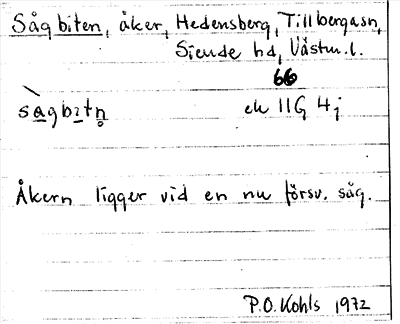 Sågbiten, åker, Hedensberg, Tillbergasn,
Siende hd, Västm.l.
66
sagbitn̥ ek 11G 4j
Åkern ligger vid en nu försv. såg.
P.O. Kohls 1972